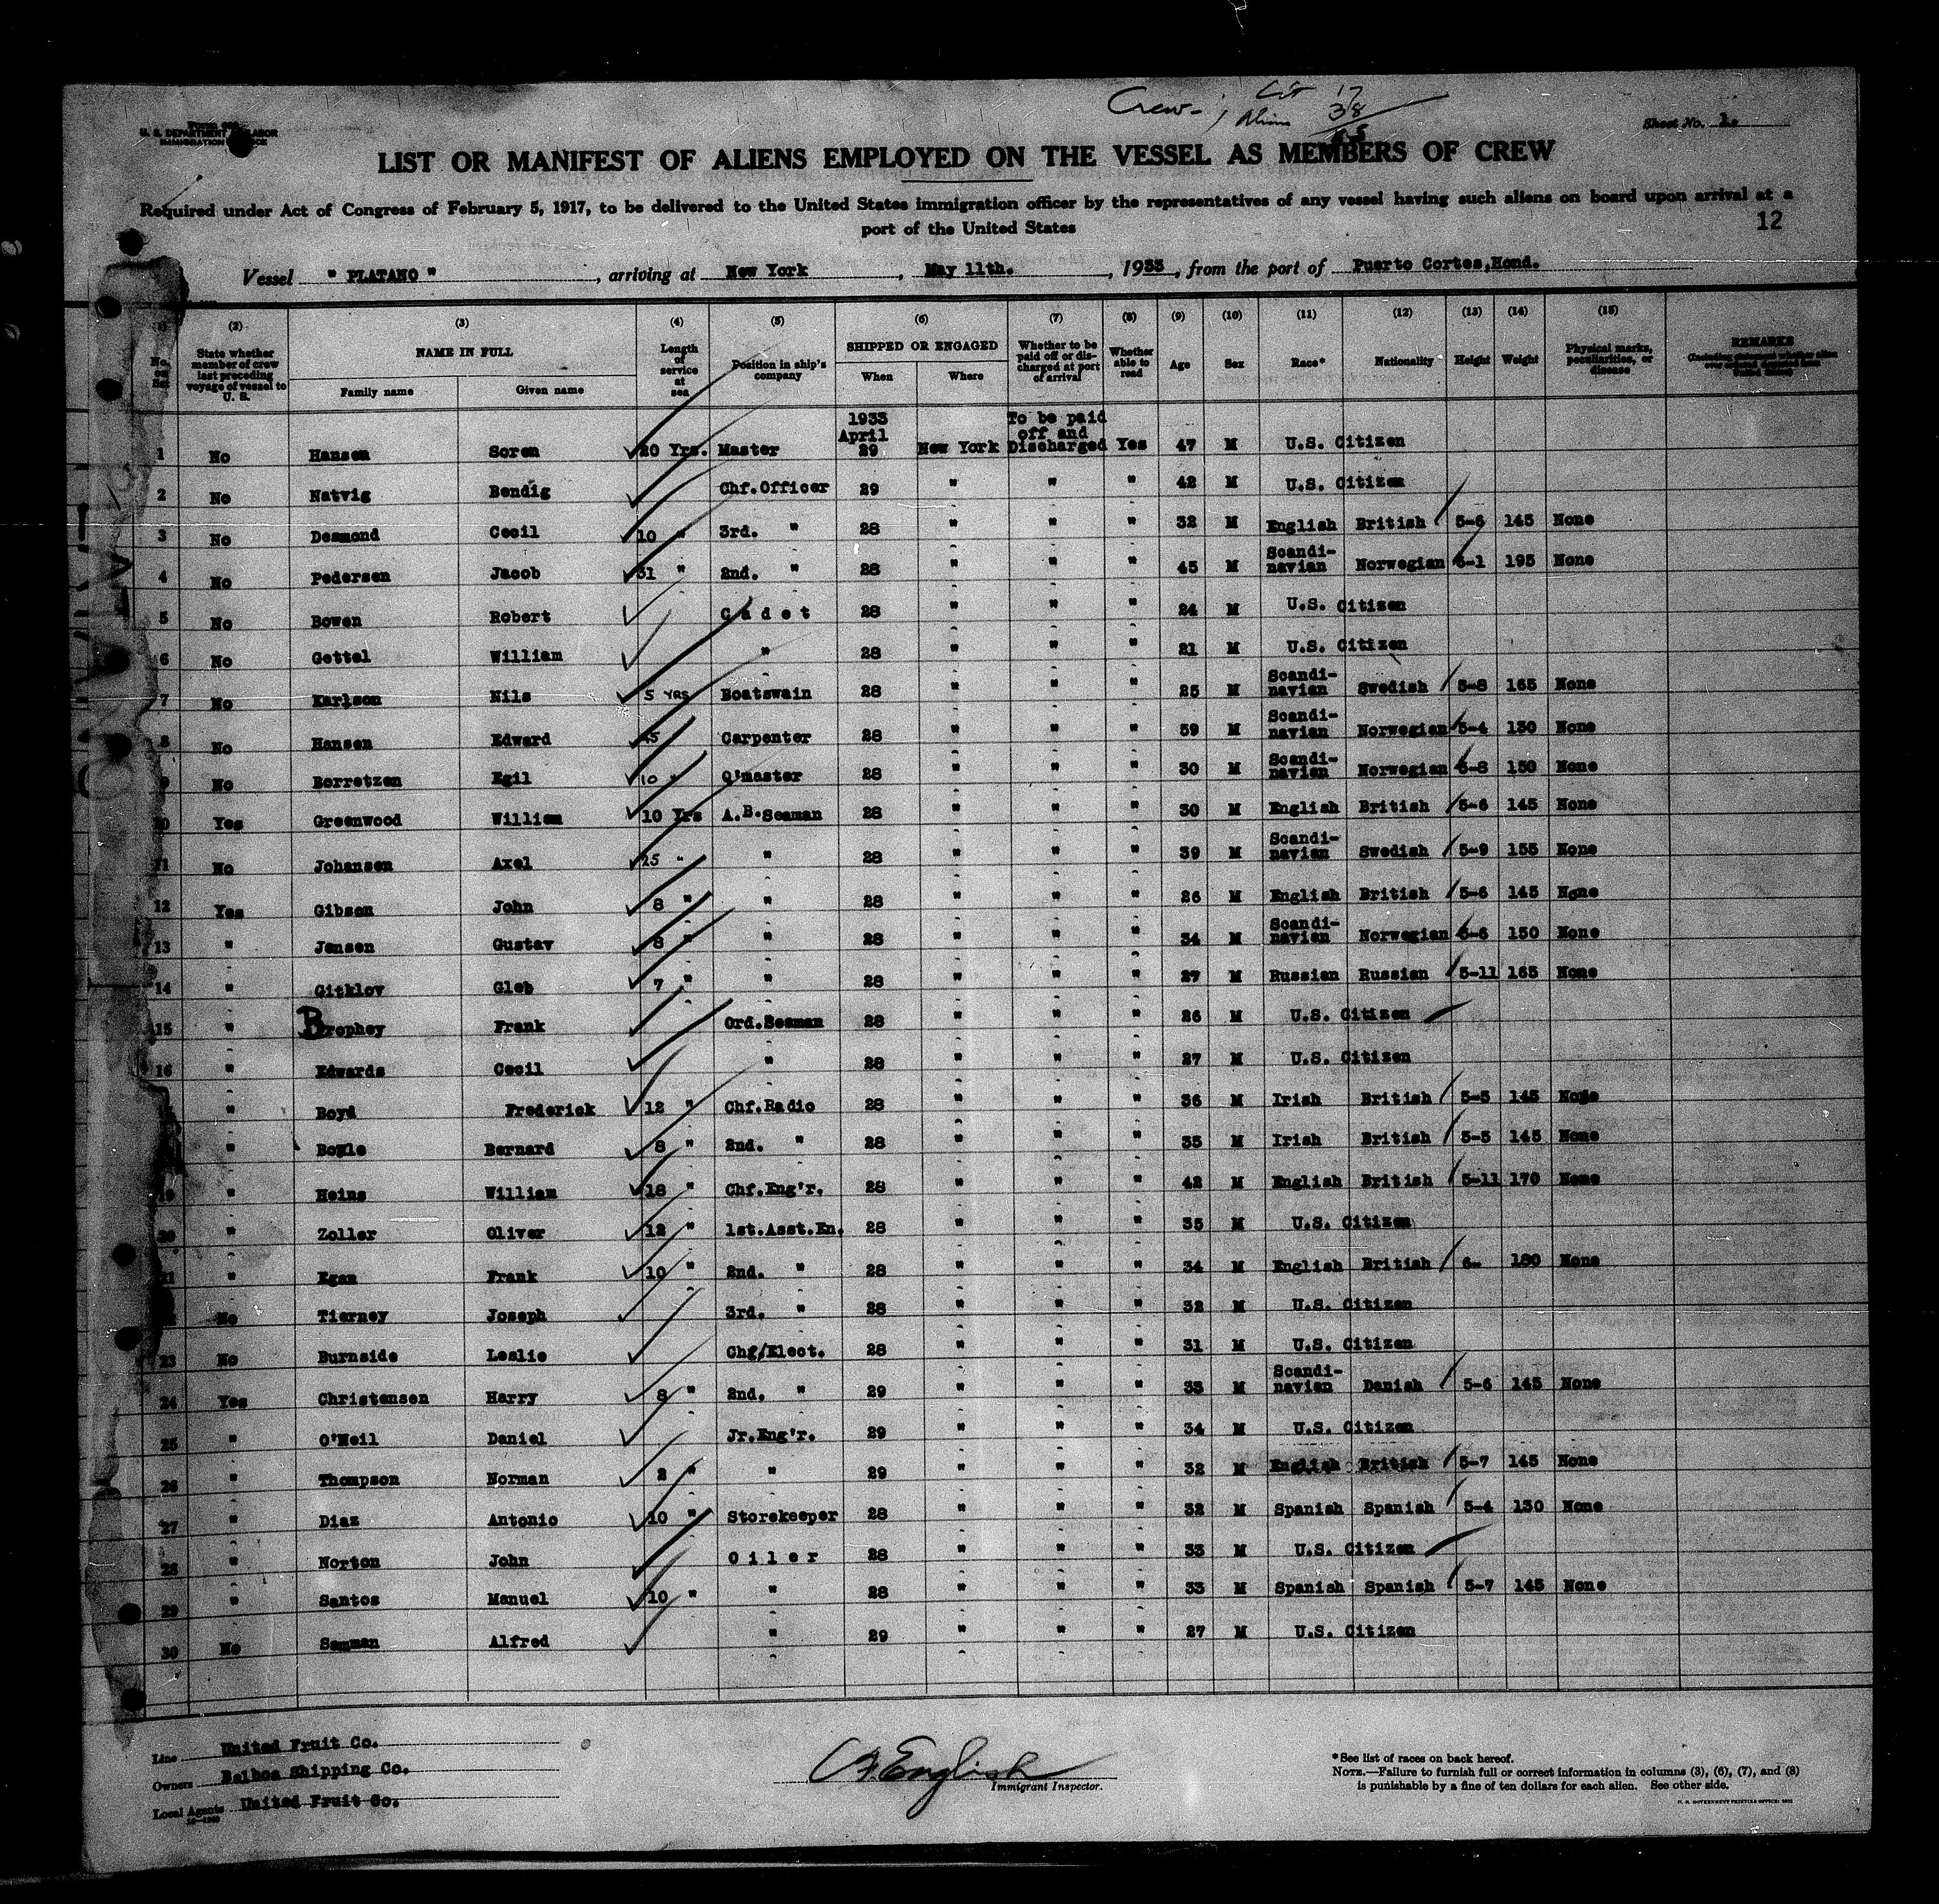 Crew- ; Cit 17
Alien 38
Sheet No. 1.
U. S. DEPARTMENT LABOR
IMMIGRATION
LIST OR MANIFEST OF ALIENS EMPLOYED ON THE VESSEL AS MEMBERS OF CREW
Required under Act of Congress of February 5, 1917, to be delivered to the United States immigration officer by the representatives of any vessel having such aliens on board upon arrival at a
port of the United States
12
Vessel " PLATANO " , arriving at New York , May 11th. , 1933, from the port of Puerto Cortes,Hond.
(1) (2) (3) (4) (5) (6) (7) (8) (9) (10) (11) (12) (13) (14) (15)
No. on list State whether member of crew last preceding voyage of vessel to U. S. NAME IN FULL Family name Given name Length of service at sea Position in ship's company SHIPPED OR ENGAGED When Where Whether to be paid off or discharged at port of arrival Whether able to read Age Sex Race* Nationality Height Weight Physical marks, peculiarities, or disease REMARKS
1933 To be paid
April off and
1 No Hansen Soren 20 Yrs. Master 29 New York Discharged Yes 47 M U.S. Citizen
2 No Natvig Bendig Chf.Officer 29 " " " 42 M U.S. Citizen
3 No Desmond Cecil 10 " 3rd. " 28 " " " 32 M English British 5-6 145 None
4 No Pedersen Jacob 31 " 2nd. " 28 " " " 45 M Scandi-navian Norwegian 6-1 195 None
5 No Bowen Robert Cadet 28 " " " 24 M U.S. Citizen
6 No Gettel William " 28 " " " 21 M U.S. Citizen
7 No Karlson Nils 5 YRS Boatswain 28 " " " 25 M Scandi-navian Swedish 5-8 165 None
8 No Hansen Edward Carpenter 28 " " " 59 M Scandi-navian Norwegian 5-4 130 None
9 No Borretzen Egil 10 " Q'master 28 " " " 30 M Scandi-navian Norwegian 5-8 150 None
10 Yes Greenwood William 10 Yrs A.B.Seaman 28 " " " 30 M English British 5-6 145 None
11 No Johansen Axel 25 " " 28 " " " 39 M Scandi-navian Swedish 5-9 155 None
12 Yes Gibson John 8 " " 28 " " " 26 M English British 5-6 145 None
13 " Jensen Gustav 8 " " 28 " " " 34 M Scandi-navian Norwegian 5-6 150 None
14 " Gitklov Gleb 7 " " 28 " " " 27 M Russian Russian 5-11 165 None
15 " Brophey Frank Ord.Seaman 28 " " " 26 M U.S. Citizen
16 " Edwards Cecil " 28 " " " 27 M U.S. Citizen
" Boyd Frederick 12 " Chf.Radio 28 " " " 36 M Irish British 5-5 145 None
" Boyle Bernard 8 " 2nd. " 28 " " " 35 M Irish British 5-5 145 None
19 " Heins William 18 " Chf.Eng'r. 28 " " " 42 M English British 5-11 170 None
20 " Zoller Oliver 12 " 1st.Asst.En. 28 " " " 35 M U.S. Citizen
21 " Egan Frank 10 " 2nd. " 28 " " " 34 M English British 6- 180 None
22 No Tierney Joseph 3rd. " 28 " " " 32 M U.S. Citizen
23 No Burnside Leslie Chg/Elect. 28 " " " 31 M U.S. Citizen
24 Yes Christensen Harry 8 " 2nd. " 29 " " " 33 M Scandi-navian Danish 5-6 145 None
25 " O'Neil Daniel Jr.Eng'r. 29 " " " 34 M U.S. Citizen
26 " Thompson Norman 2 " " 29 " " " 32 M English British 5-7 145 None
27 " Diaz Antonio 10 " Storekeeper 28 " " " 32 M Spanish Spanish 5-4 130 None
28 " Norton John Oiler 28 " " " 33 M U.S. Citizen
29 " Santos Manuel 10 " " 28 " " " 33 M Spanish Spanish 5-7 145 None
30 No Seaman Alfred " 29 " " " 27 M U.S. Citizen
Line United Fruit Co.
Owners Balboa Shipping Co.
Local Agents United Fruit Co.
English
Immigrant Inspector.
*See list of races on back hereof.
NOTE.—Failure to furnish full or correct information in columns (3), (6), (7), and (8)
is punishable by a fine of ten dollars for each alien. See other side.